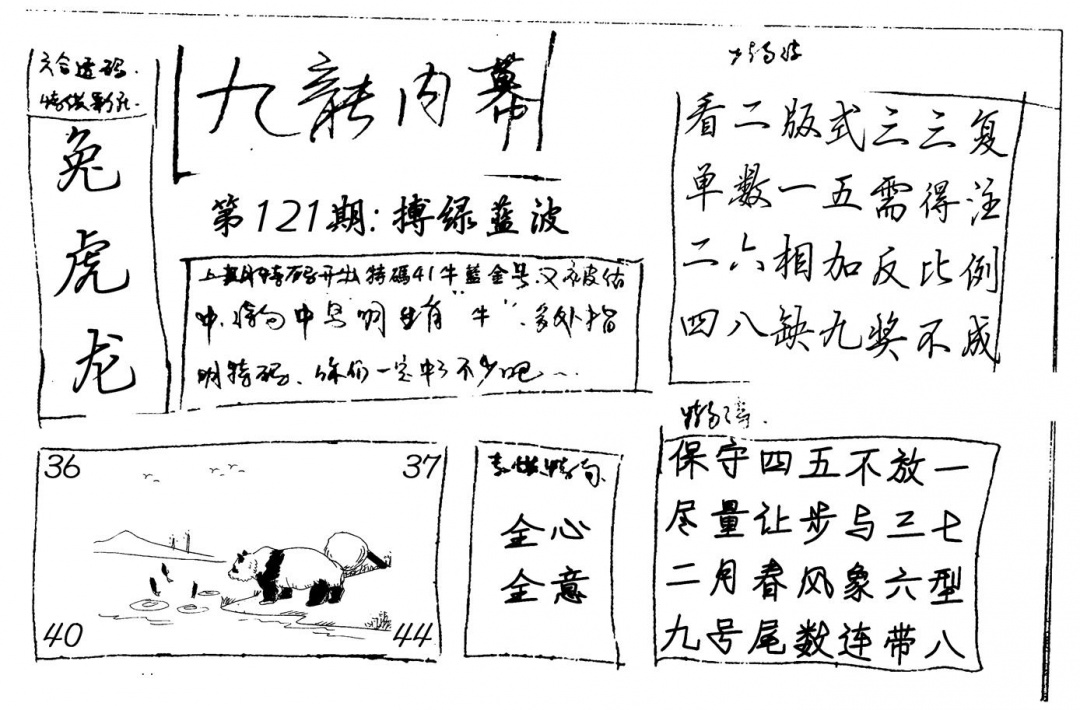 六合透码
兔
虎
龙
九龍内幕
第121期:搏绿蓝波
上期特码开出特碼41牛蓝金号.又被估
中.特句中写明生肖“牛”.多处指
明特码.你们一定中了不少吧
看二版式三三复
单数一五需得注
二六相加反比例
四八缺九奖不成
36
37
40
44
全心
全意
保守四五不放一
尽量让步与三七
二月春风象六型
九号尾数连带八